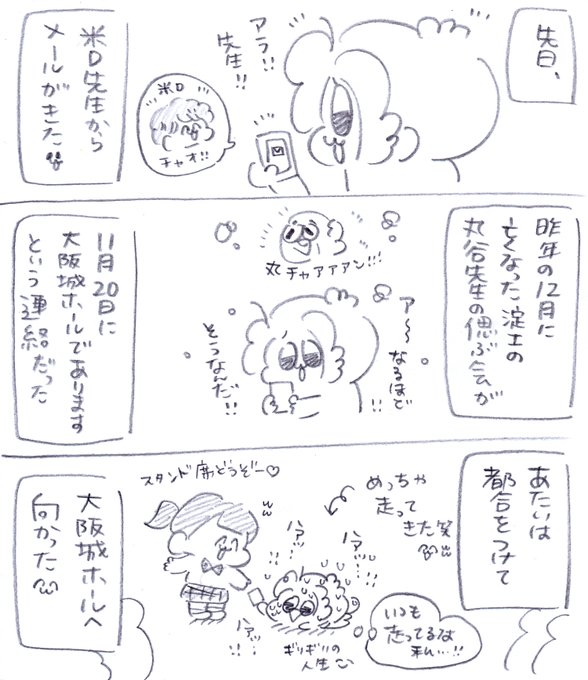 先日、
アラ!!
先生!!
米D
チャオ!!
米D先生から
メールがきた
昨年の12月に
亡くなった淀工の
丸谷先生の偲ぶ会が
丸チャアアアン!!!
ア〜〜
なるほど
!!
そうなんだ!!
11月20日に
大阪城ホールであります
という連絡だった
あたいは
都合をつけて
めっちゃ
走って
きた笑
スタンド席どうぞー♡
ハァッ
ハァ
ハァッ
!!
ギリギリの
人生
いつも
走ってるな
私…!!
大阪城ホールへ
向かった